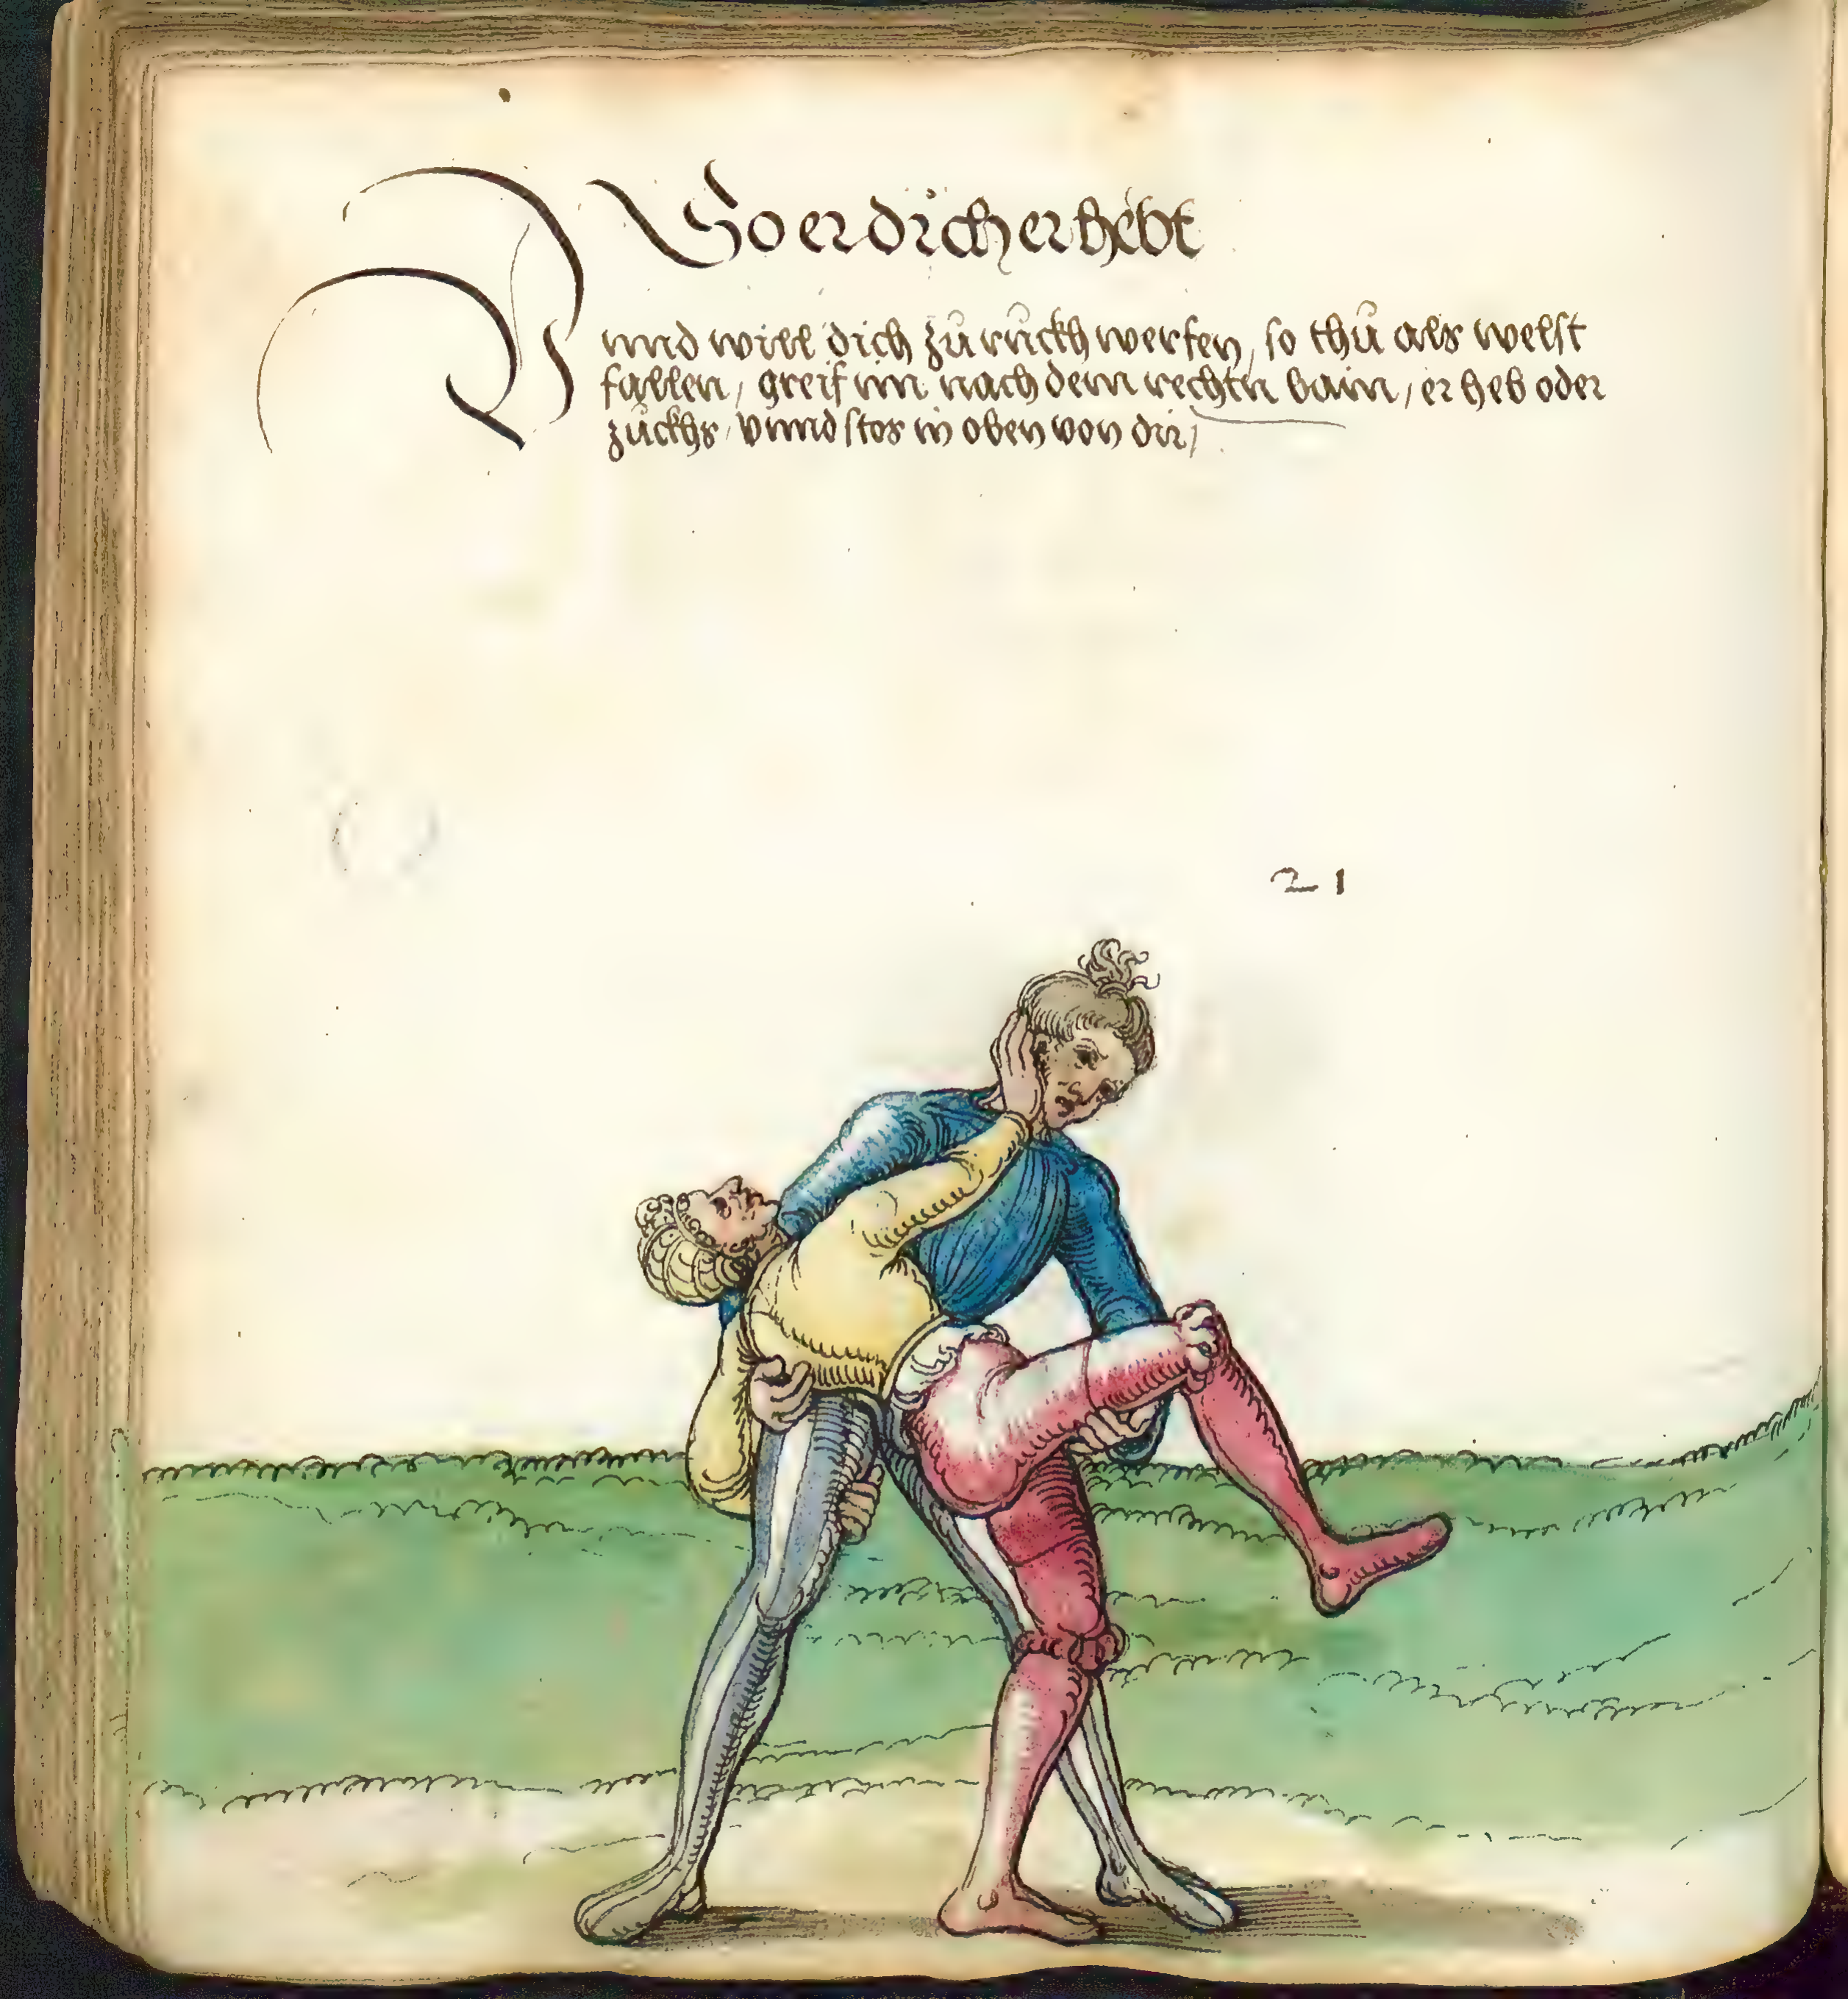 So er dich erhebt
unnd will dich zů ruckh werfen, so thů als welst
fallen / greif im nach dem rechtn bain / er heb oder
zůckhs / vnnd stos in oben von dir /
21